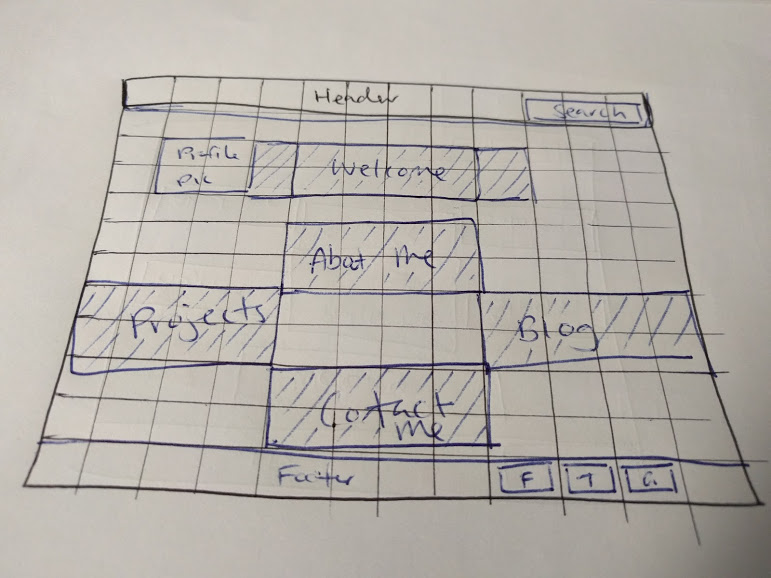 Header
Search
Profile
pic
Welcome
About me
Projects
Blog
Contact
me
Footer
F
T
G